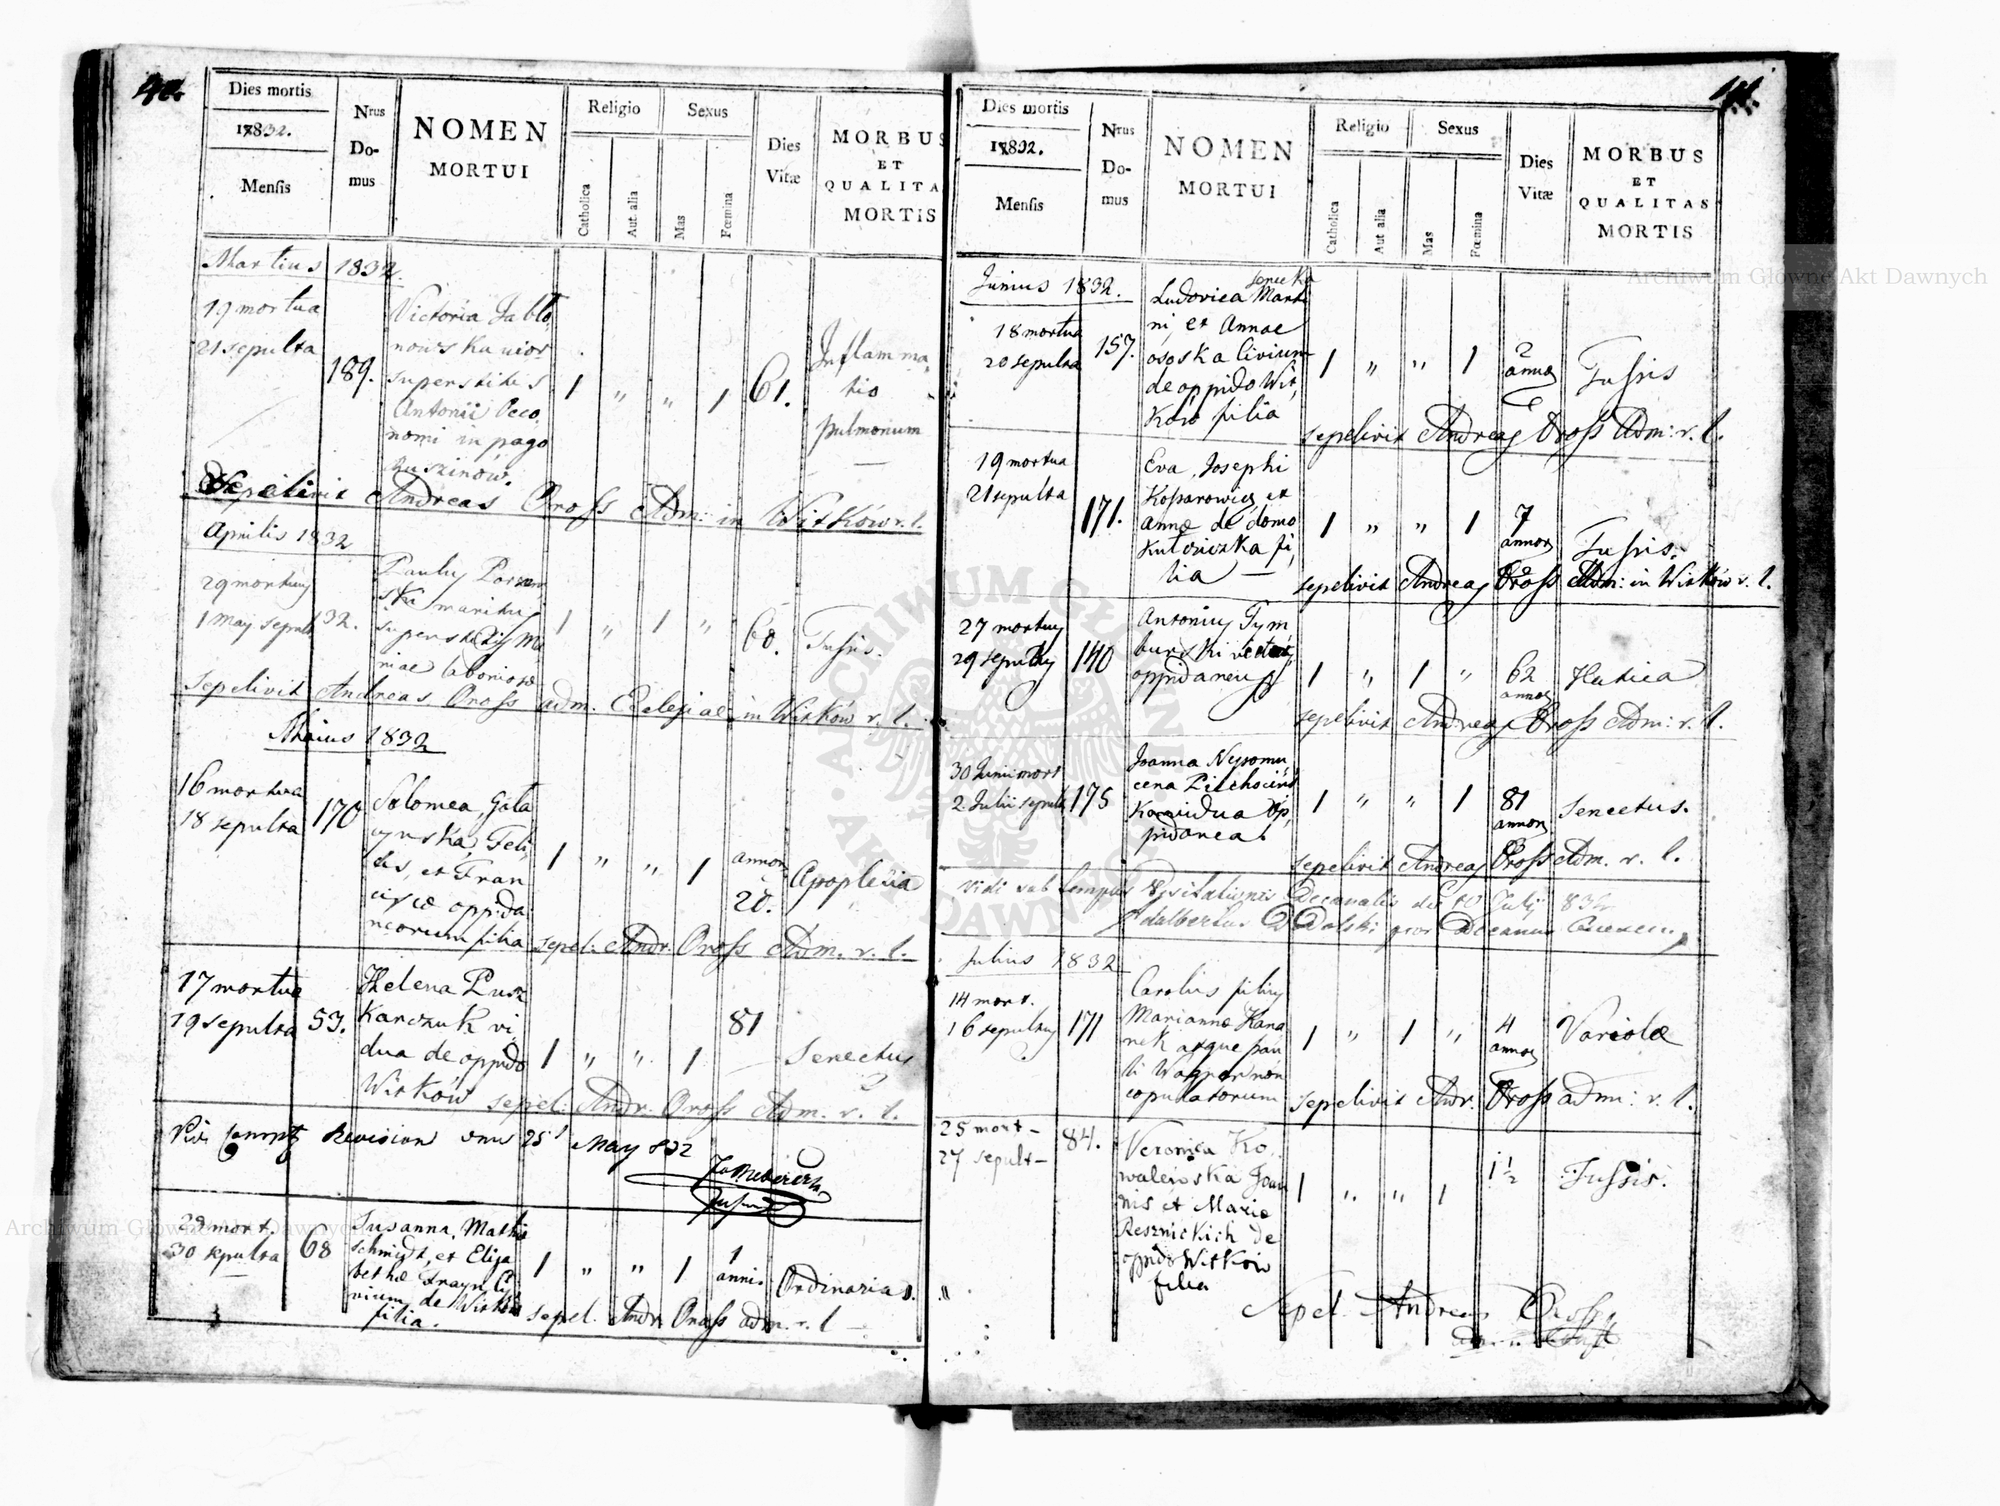 40.
Dies mortis
1832.
Mensis
Nrus
Do-
mus
NOMEN
MORTUI
Religio
Catholica
Aut alia
Sexus
Mas
Fœmina
Dies
Vitæ
MORBUS
ET
QUALITA
MORTIS
Martius 1832.
19 mortua
21 sepulta
189.
Victoria Jablo
nowska uxor
superstitis
Antonii Oeco
nomi in pago
Ruszinow.
1 " " 1
61.
Inflamma
tio
pulmonum
Sepelivit Andreas Oross Adm: in Witków r. l.
Aprilis 1832
29 mortuus
1 May sepult
32.
Paulus
ski maritus
superstitis Ma
riae laboriosæ
1 " 1 "
60.
Tussis.
Sepelivit Andreas Oross adm. Eclesiae in Witków r. l.
Maius 1832
16 mortua
18 sepulta
170
Salomea, Gała
zynska, Feli
cis, et Fran
ciscæ oppida
neorum filia
1 " " 1
annor
20.
Apoplexia
sepel: Andr. Oross Adm. r. l.
17 mortua
19 sepulta
53.
Helena Pusz
Karczuk vi
dua de oppido
Witków
1 " " 1
81
Senectus
sepel: Andr. Oross Adm. r. l.
Revision 25 May 832
29 mort.
30 sepulta
68
Susanna, Mathi
Schmidt, et Elisa
bethæ Frayn Ci
vium de Witków
filia.
1 " " 1
1
annis
Ordinaria
sepel. Andr Oross adm. r. l
41.
Dies mortis
1832.
Mensis
Nrus
Do-
mus
NOMEN
MORTUI
Religio
Catholica
Aut alia
Sexus
Mas
Fœmina
Dies
Vitæ
MORBUS
ET
QUALITAS
MORTIS
Junius 1832.
18 mortua
20 sepulta
157.
Ludovica Marti
ni, et Annae
Ososka Civium
de oppido Wit
Ków filia
1 " " 1
2
annor
Tussis
sepelivit Andreas Oross Adm: r. l.
19 mortua
21 sepulta
171.
Eva, Josephi
Kossarowicz et
Annæ de domo
Kulcziczka fi
lia
1 " " 1
7
annor
Tussis.
sepelivit Andreas Oross Adm: in Witków r. l.
27 mortuus
29 sepultus
140
Antonius Tym
burski
oppidaneus
1 " 1 "
62
annor
Hectica
sepelivit Andreas Oross Adm: r. l.
30 Junii mort
2 Julii sepult
175
Joanna Nepomu
cena Pilchocińs
Ka vidua Op
pidanea
1 " " 1
81
annor
Senectus.
sepelivit Andreas Oross Adm. r. l.
Vidi sub tempus Visitationis Decanalis die 10 July 832
Adalbertus Dolski Decanus
Julius 1832
14 mort.
16 sepultus
171
Carolus filius
Mariannæ Kana
rek atque Pau
li Wagner non
copulatorum
1 " 1 "
4
annor
Variolæ
sepelivit Andr. Oross adm: r. l.
25 mort-
27 sepult-
84.
Veronica Ko
walewska Joan
nis et Mariæ
Resznickich de
oppido Witków
filia
1 " " 1
1 1/2
Tussis.
Sepel. Andreas Oross
Archiwum Główne Akt Dawnych
Archiwum Główne Akt Dawnych
ARCHIWUM GŁÓWNE · AKT DAWNYCH ·